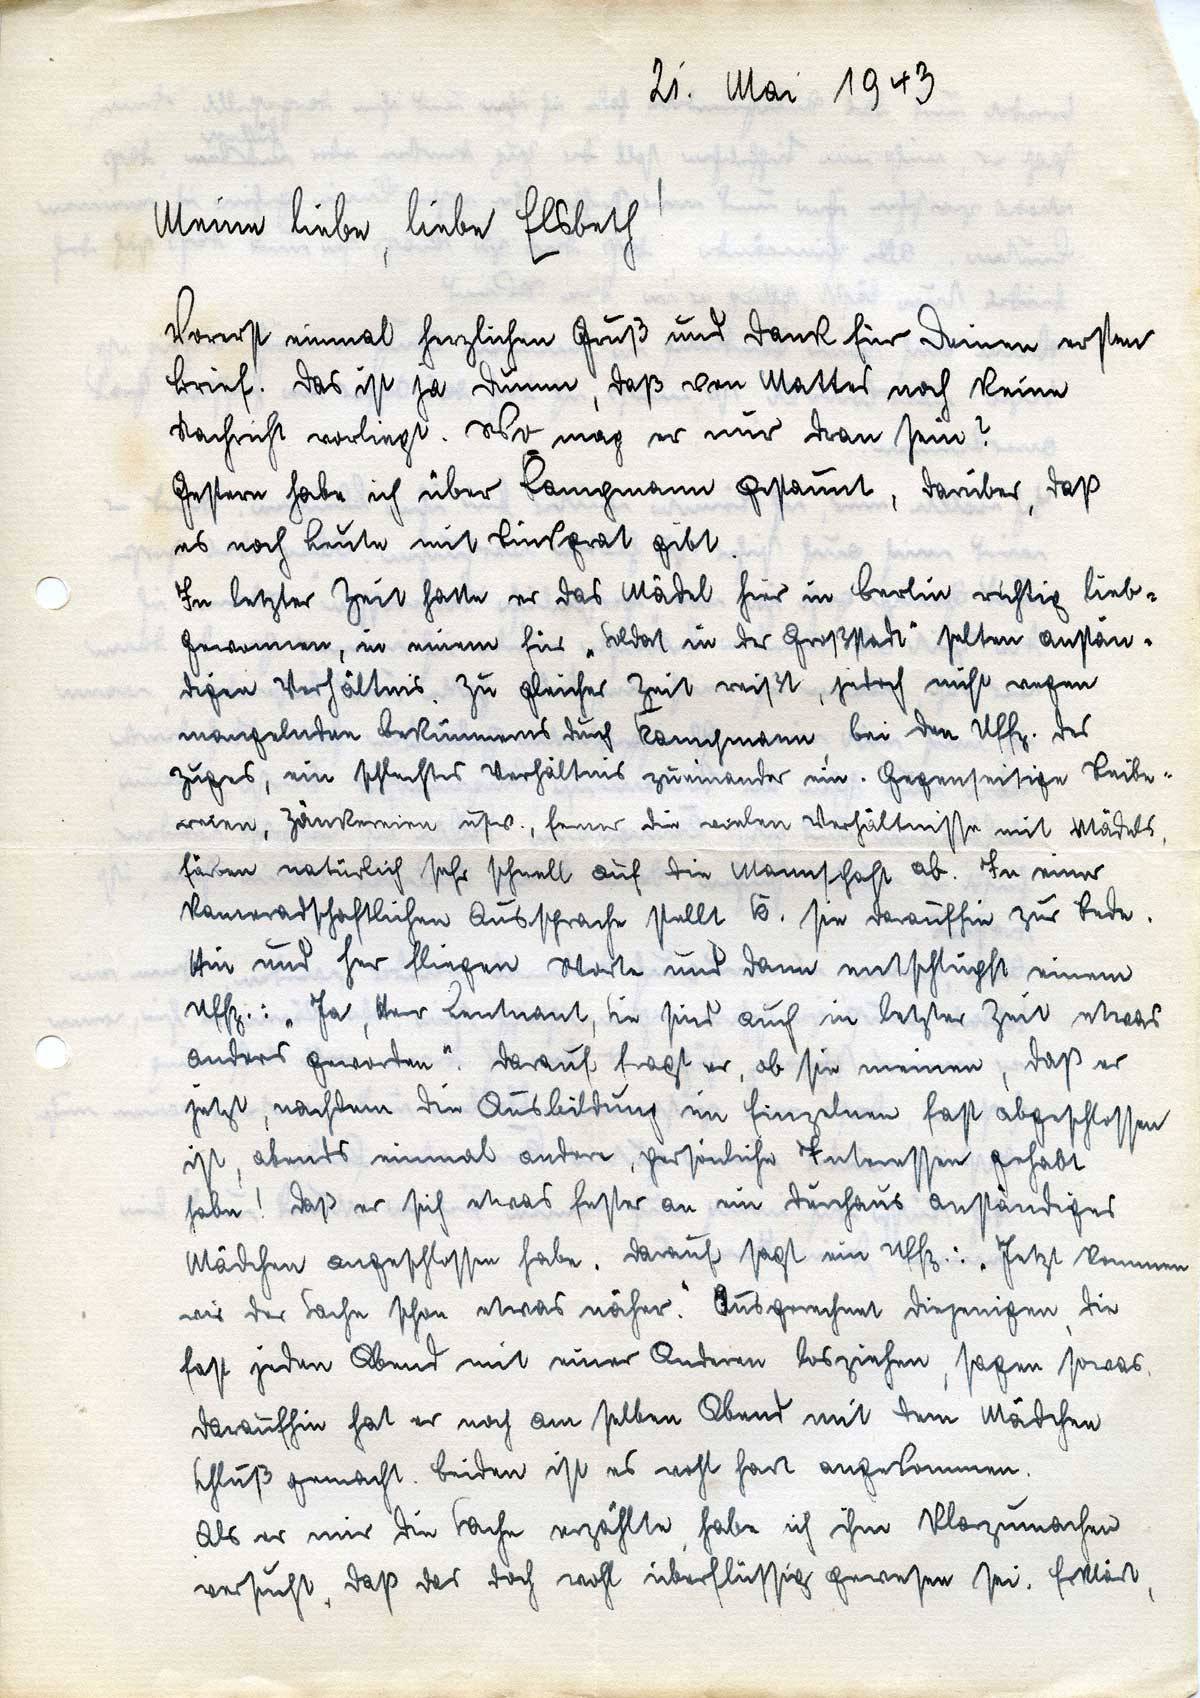 21. Mai 1943
Meine liebe, liebe Elsbeth!
Vorerst einmal herzlichen Gruß und Dank für Deinen ersten
Brief. Das ist ja dumm, daß von Mattes noch keine
Nachricht vorliegt. Wo mag er nur dran sein?
Gestern habe ich über Kampmann gestaunt, darüber, daß
es noch Leute mit Rückgrat gibt.
In letzter Zeit hatte er das Mädel hier in Berlin richtig lieb-
gewonnen, in einem für „Soldat in der Großstadt" selten anstän-
digen Verhältnis. Zu gleicher Zeit reißt, jedoch nicht wegen
mangelnden Bekümmerns durch Kampmann, bei den Uffz. des
Zuges, ein schlechtes Verhältnis zueinander ein. Gegenseitige Reibe-
reien, Zänkereien usw., ferner die vielen Verhältnisse mit Mädels,
färben natürlich sehr schnell auf die Mannschaft ab. In einer
kameradschaftlichen Aussprache stellt K. sie daraufhin zur Rede.
Hin und her fliegen Worte und dann entschlüpft einem
Uffz.: „Ja, Herr Leutnant, Sie sind auch in letzter Zeit etwas
anders geworden". Darauf fragt er, ob sie meinen, daß er
jetzt, nachdem die Ausbildung im Einzelnen fast abgeschlossen
ist, abends einmal andere, persönliche Interessen gehabt
habe! Daß er sich etwas fester an ein durchaus anständiges
Mädchen angeschlossen habe. Darauf sagt ein Uffz.: „Jetzt kommen
wir der Sache schon etwas näher." Ausgerechnet diejenigen, die
fast jeden Abend mit einer Anderen losziehen, sagen sowas.
Daraufhin hat er noch am selben Abend mit dem Mädchen
Schluß gemacht. Beiden ist es wohl hart angekommen.
Als er mir die Sache erzählte, habe ich ihm klarzumachen
versucht, daß das doch wohl überflüssig gewesen sei. Erklärt,